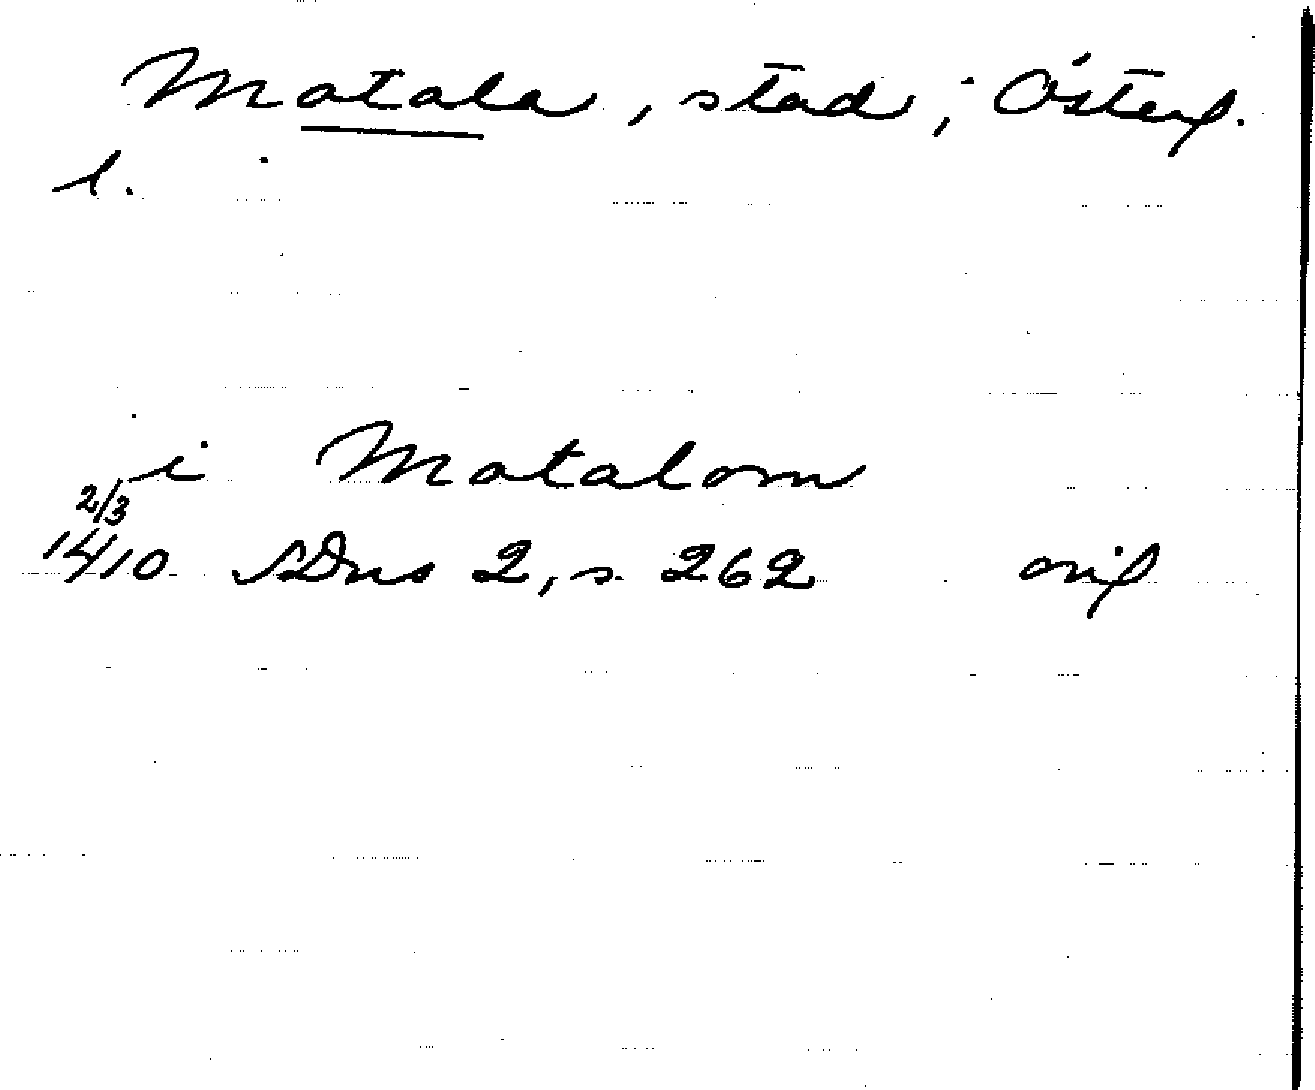 Motala, stad, Österg.
l.
i Motalom
2/3
1410 SDns 2, s. 262 orig